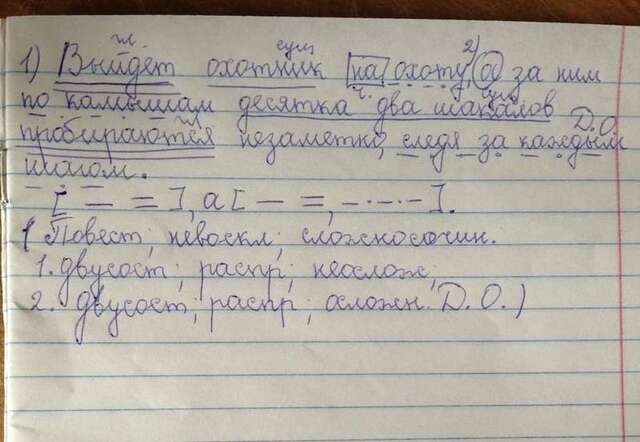 гл. сущ 2)
1) Выйдет охотник на охоту, а за ним
по камышам десятка два шакалов Д.О.
ч. сущ гл
пробираются незаметно, следя за каждым
шагом.
[ — = ], а [ — =, –·–·–·– ].
( Повест; невоскл; сложносочин.
1. двусост; распр; неослож;
2. двусост; распр; осложн. Д.О. )